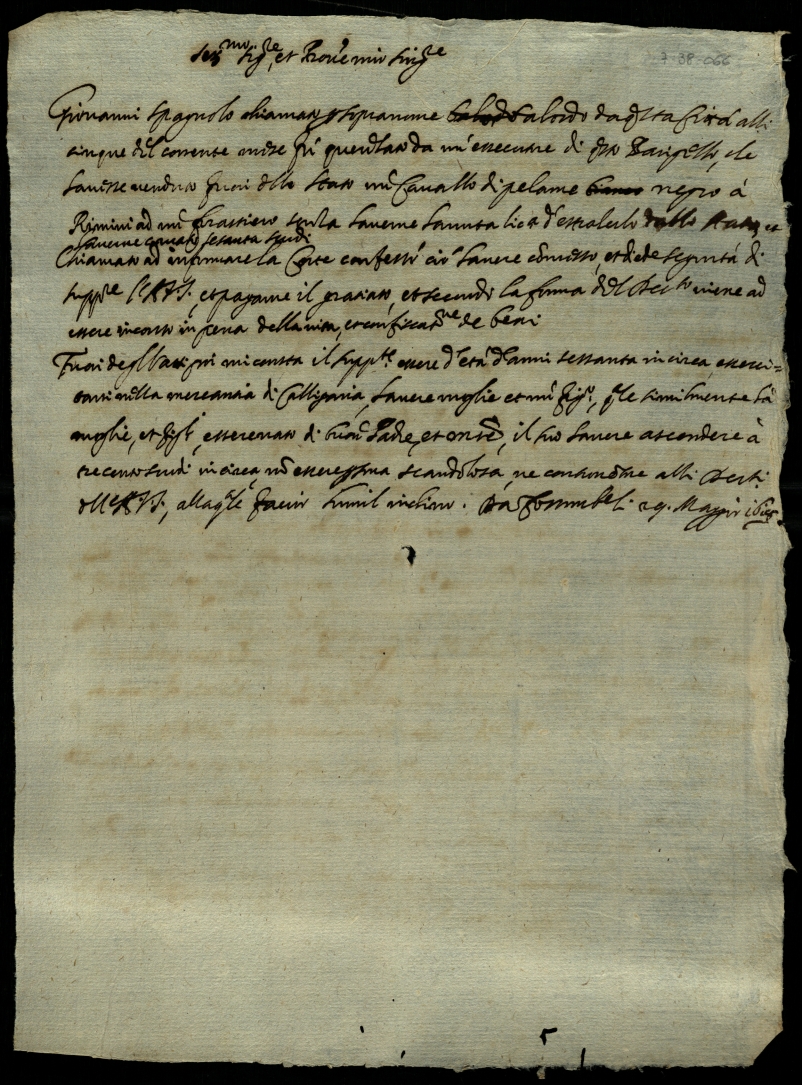 Ser.mo Sig.re, et Prone mio Sing.re
7-38-066
Giovanni Spagnolo chiamato p sopranome Balordo da q.sta Città alli
cinque del corrente mese fù querelato da un' essecutore di q.sto Barigello, che
havesse venduto fuori dello stato un Cavallo di pelame negro à
Rimini ad un forastiero senza haverne havuta lic.a d'estraherlo dallo stato, et
haverne cavato sesanta scudi
Chiamato ad informare la Corte confessò ciò havere cõmesso, et diede segurtà di
supp.re l'A.V.S. et pagarne il gratiato, et secondo la forma del Decr.to viene ad
essere incorso in pena della vita, et confiscat.ne de beni
Fuori degl'atti poi mi consta il supp.te essere d'età d'anni sessanta in circa, esserci=
tarsi nella mercantia di Calligaria, havere moglie et un figl.o, q.le similmente hà
moglie, et figl.i, essere nato di buon Padre, et onesto, il suo havere ascendere à
trecento scudi in circa, nõ essere psona scandolosa, ne contravenire alli Decr.ti
dell'A.V.S., alla q.le faccio humil inchino. Da 29. Maggio